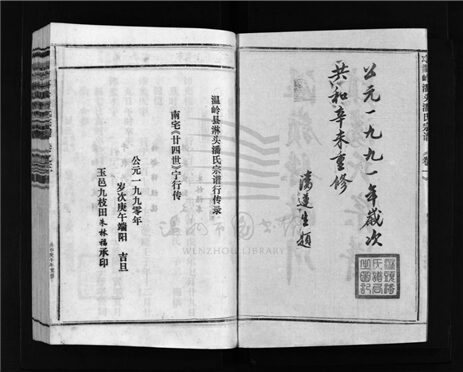 公元一九九一年歲次
共和辛未重修
潘達生題
温岭县淋头潘氏宗谱行传录
南宅《廿四世》宁行传
公元一九九〇年
岁次庚午端阳 吉旦
玉邑九枝田朱林福承印
温州市图书馆
WENZHOU LIBRARY